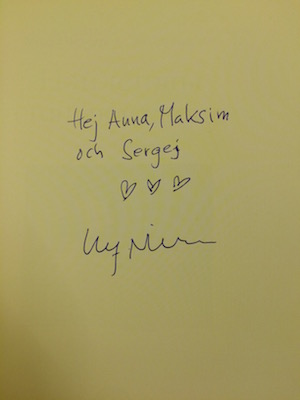 Hej Anna, Maksim
och Sergej